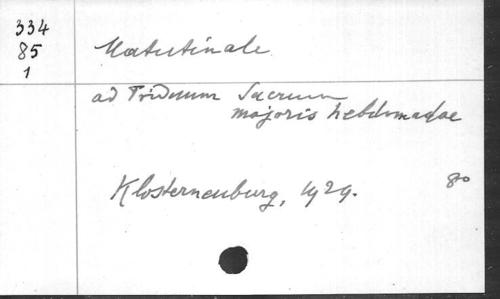 334
85
1
Matutinale
ad Triduum Sacrum
majoris hebdomadae
Klosterneuburg, 1929. 8o